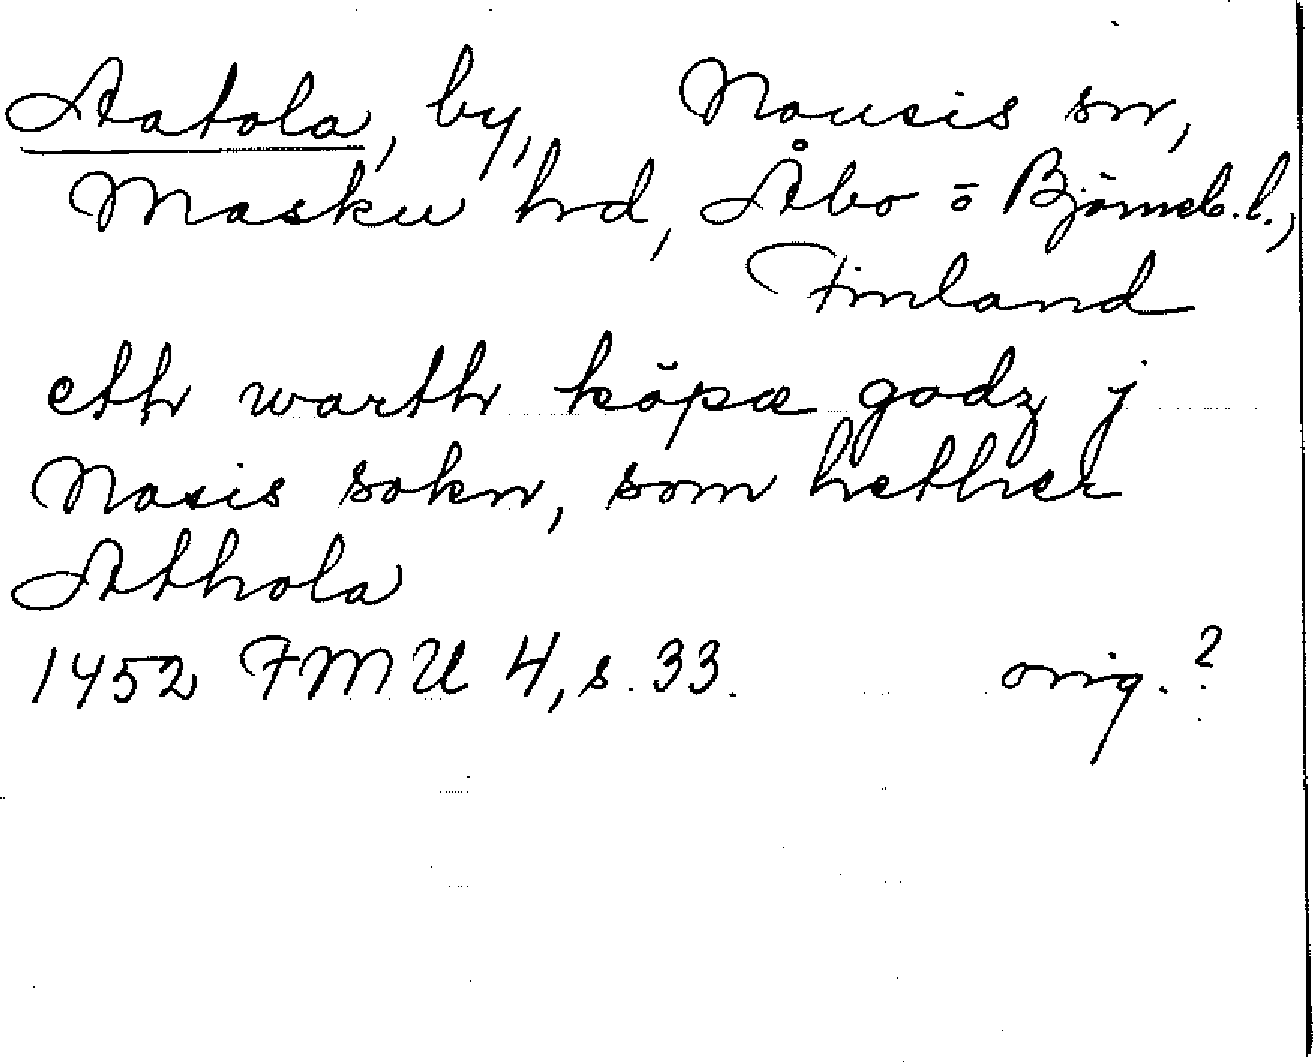 Aatola, by, Nousis sn,
Masku hd, Åbo o Björneb. l.,
Finland
eth warth köpæ godz j
Nasis sokn, som hether
Athola
1452 FMU 4, s. 33. orig. ?